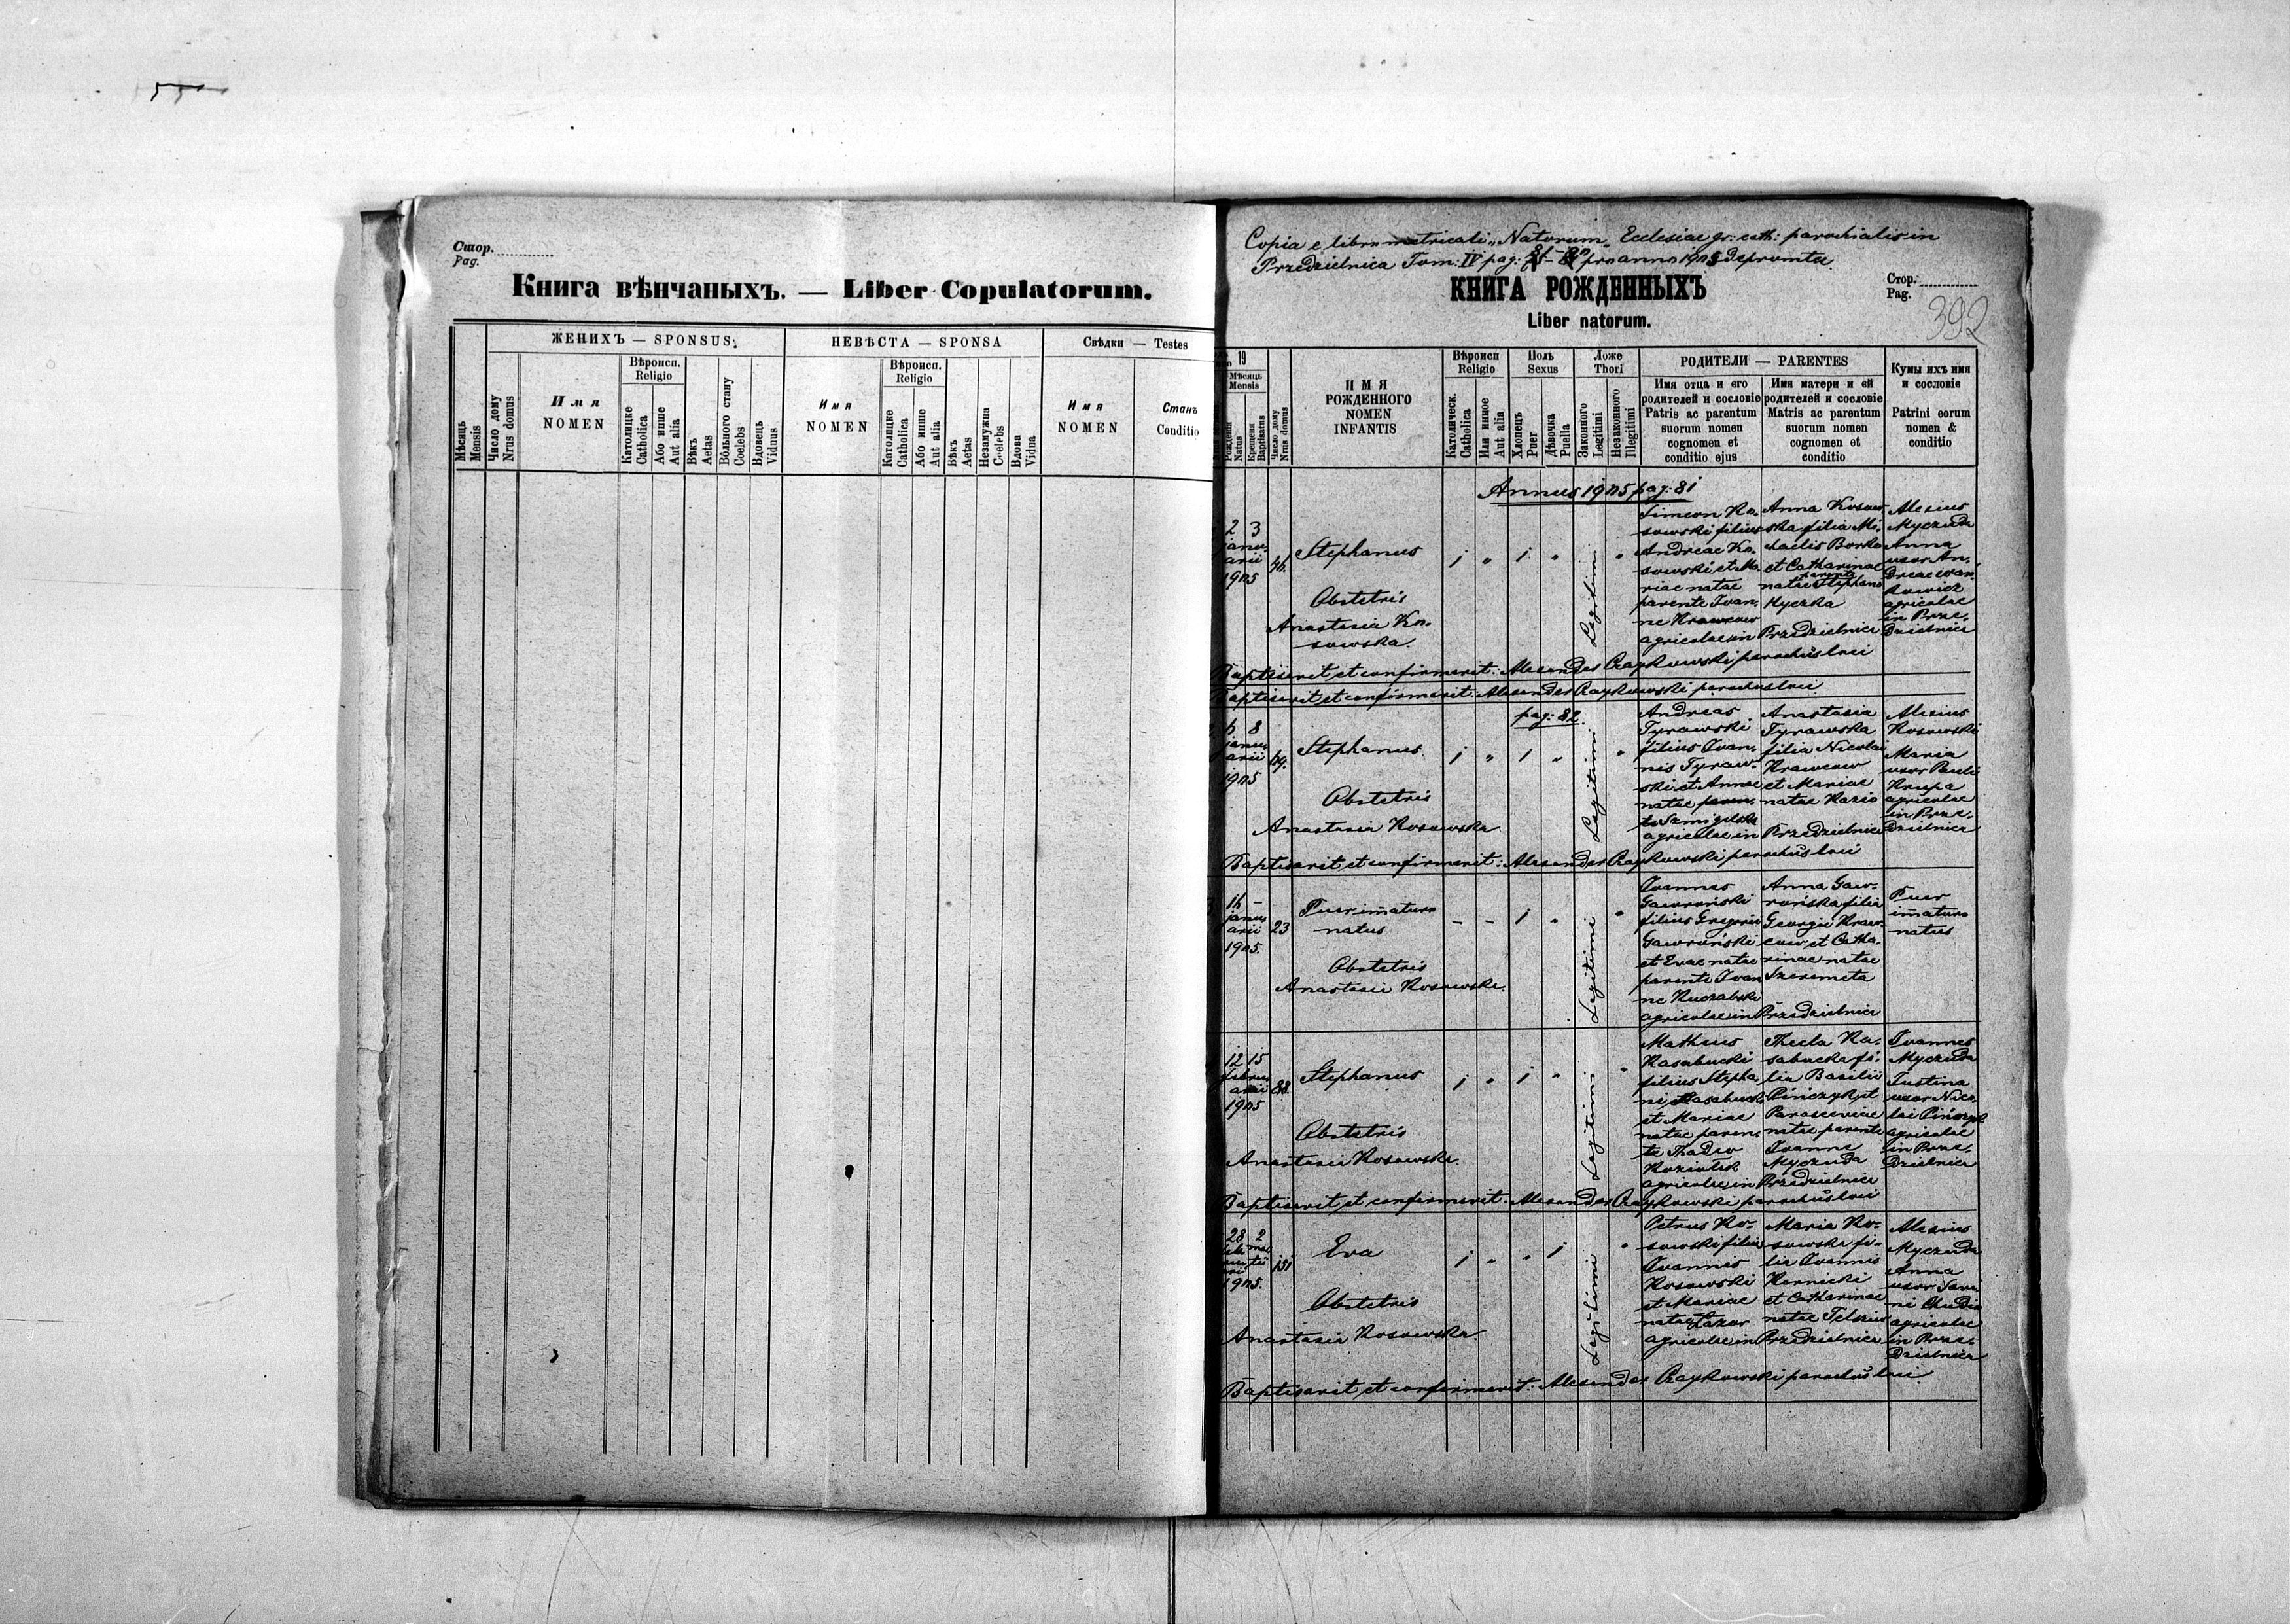 Стор.
Pag.
Книга вѣнчаныхъ. — Liber Copulatorum.
ЖЕНИХЪ — SPONSUS.
НЕВѢСТА — SPONSA
Свѣдки — Testes
Мѣсяць
Mensis
Число дому
Nrus domus
Имя
NOMEN
Вѣроисп.
Religio
Католицке
Catholica
Або инше
Aut alia
Вѣкъ
Aetas
Вольного стану
Coelebs
Вдовець
Viduus
Имя
NOMEN
Вѣроисп.
Religio
Католицке
Catholica
Або инше
Aut alia
Вѣкъ
Aetas
Незамужна
Coelebs
Вдова
Vidua
Имя
NOMEN
Станъ
Conditio
Copia e libro metricali „Natorum„ Ecclesiae gr: cath: parochialis in
Przedzielnica Tom: IV pag: pro anno 1905 depromta.
КНИГА РОЖДЕННЫХЪ
Liber natorum.
Стор.
Pag.
392
19
Мѣсяць
Mensis
Рожденя
Natus
Крещеня
Baptisatus
Число дому
Nrus domus
ИМЯ
РОЖДЕННОГО
NOMEN
INFANTIS
Вѣроисп
Religio
Католическ.
Catholica
Или инное
Aut alia
Полъ
Sexus
Хлопецъ
Puer
Дѣвочка
Puella
Ложе
Thori
Законного
Legitimi
Незаконного
Illegitimi
РОДИТЕЛИ — PARENTES
Имя отца и его
родителей и сословіе
Patris ac parentum
suorum nomen
cognomen et
conditio ejus
Имя матери и ей
родителей и сословіе
Matris ac parentum
suorum nomen
cognomen et
conditio
Кумы ихъ имя
и сословіе
Patrini eorum
nomen &
conditio
Annus 1905 pag: 81
2 3
janu
arii
1905
Stephanus
1 „ 1 „
Legitimi
Obstetris
Anastasia Ko-
sowska.
Simeon Ko-
sowski filius
Andreae Ko-
sowski et Ma-
riae natae
parente Ivan-
ne Krawcow
agricolae in
Anna Kosow-
ska filia Mi-
chaelis Borko
et Catharinae
natae parente Stephano
Myczka
Przedzielnica
Alexius
Myczuda
Anna
uxor An-
dreae Iwan-
kowicz
agricolae
in Prze-
dzielnica
Baptisavit et confirmavit: Alexander Czajkowski parochus loci
Baptisavit et confirmavit: Alexander Czajkowski parochus loci
pag: 82.
6 8
janu
arii
1905
69.
Stephanus
1 „ 1 „
Legitimi
Obstetris
Anastasia Kosowska
Andreas
Tyrawski
filius Ivan-
nis Tyraw-
ski et Annae
natae paren-
te Samigelska
agricolae in
Anastasia
Tyrawska
filia Nicolai
Krawcow
et Mariae
natae Kazio
Przedzielnica
Alexius
Kosowski
Maria
uxor Pauli
Krupa
agricolae
in Prze-
dzielnica
Baptisavit et confirmavit: Alexander Czajkowski parochus loci
16 –
janu
arii
1905.
23
Puer imature
natus
– – 1 „
Legitimi
Obstetris
Anastasia Kosowska.
Ivannes
Gawroński
filius Gregorii
Gawroński
et Evae natae
parente Ivan
ne Kuczabska
agricolae in
Anna Gaw-
rońska filia
Georgii Kraw-
cow et Catha-
rinae natae
Szeremeta
Przedzielnica
Puer
imature
natus
12 15
februa
arii
1905
88.
Stephanus
1 „ 1 „
Legitimi
Obstetris
Anastasia Kosowska.
Matheus
Kasabucki
filius Stepha-
ni Kasabucki
et Mariae
natae paren-
te Thadeo
Koziolek
agricolae in
Thecla Ka-
sabucka fi-
lia Basilii
Pińczyk et
Parasceviae
natae parente
Ivanne
Myczuda
Przedzielnica
Ivannes
Myczuda
Justina
uxor Nico-
lai Pińczyk
agricolae
in Prze-
dzielnica
Baptisavit et confirmavit: Alexander Czajkowski parochus loci
28 2
1905.
151
Eva
1 „ „ 1
Legitimi
Obstetris
Anastasia Kosowska
Petrus Ko-
sowski filius
Ivannis
Kosowski
et Mariae
natae Lazor
agricolae in
Maria Ko-
sowska fi-
lia Ivannis
Kernicki
et Catharinae
natae
Przedzielnica
Alexius
Myczuda
Anna
uxor
agricolae
in Prze-
dzielnica
Baptisavit et confirmavit: Alexander Czajkowski parochus loci.